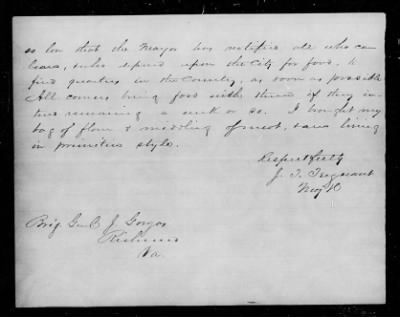 so low that the Mayor has notified all who can
leave, who depend upon the City for food, to
find quarters in the Country, as soon as possible
All comers bring food with them if they in-
tend remaining a week or so. I brought my
bag of flour & middling of meat, & am living
in primitive style.
Respectfully
J. T. Trezevant
Maj
Brig. Genl J. Gorgas
Richmond
Va.